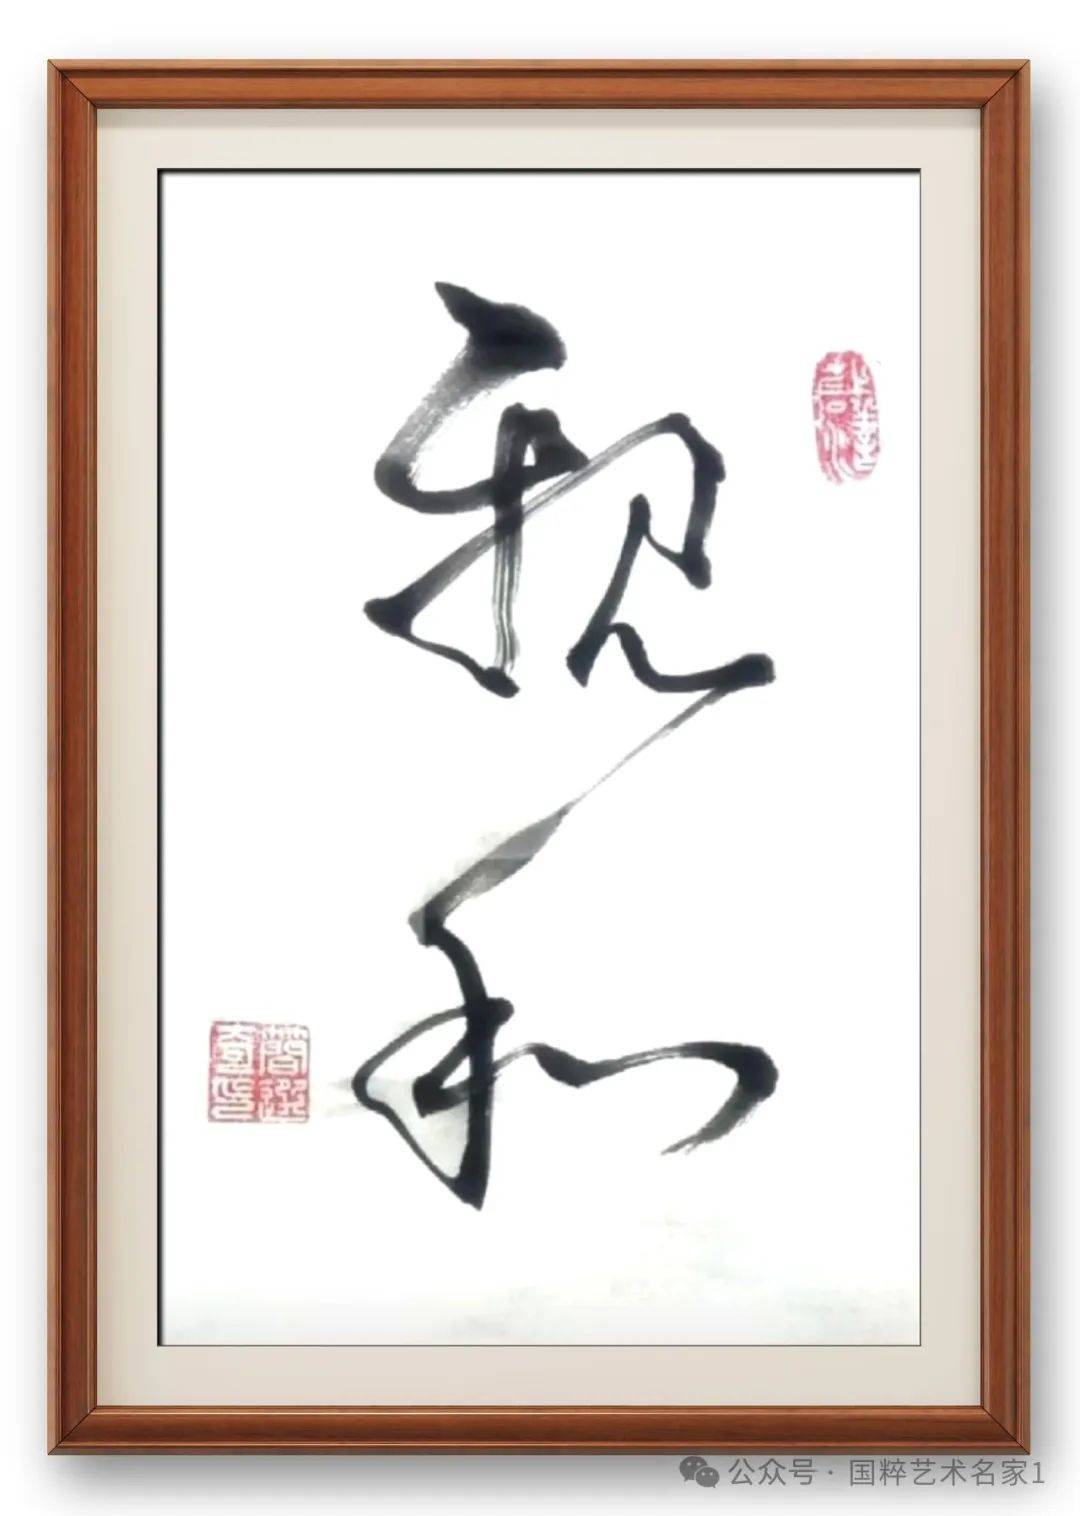 親和
公众号 · 国粹艺术名家1